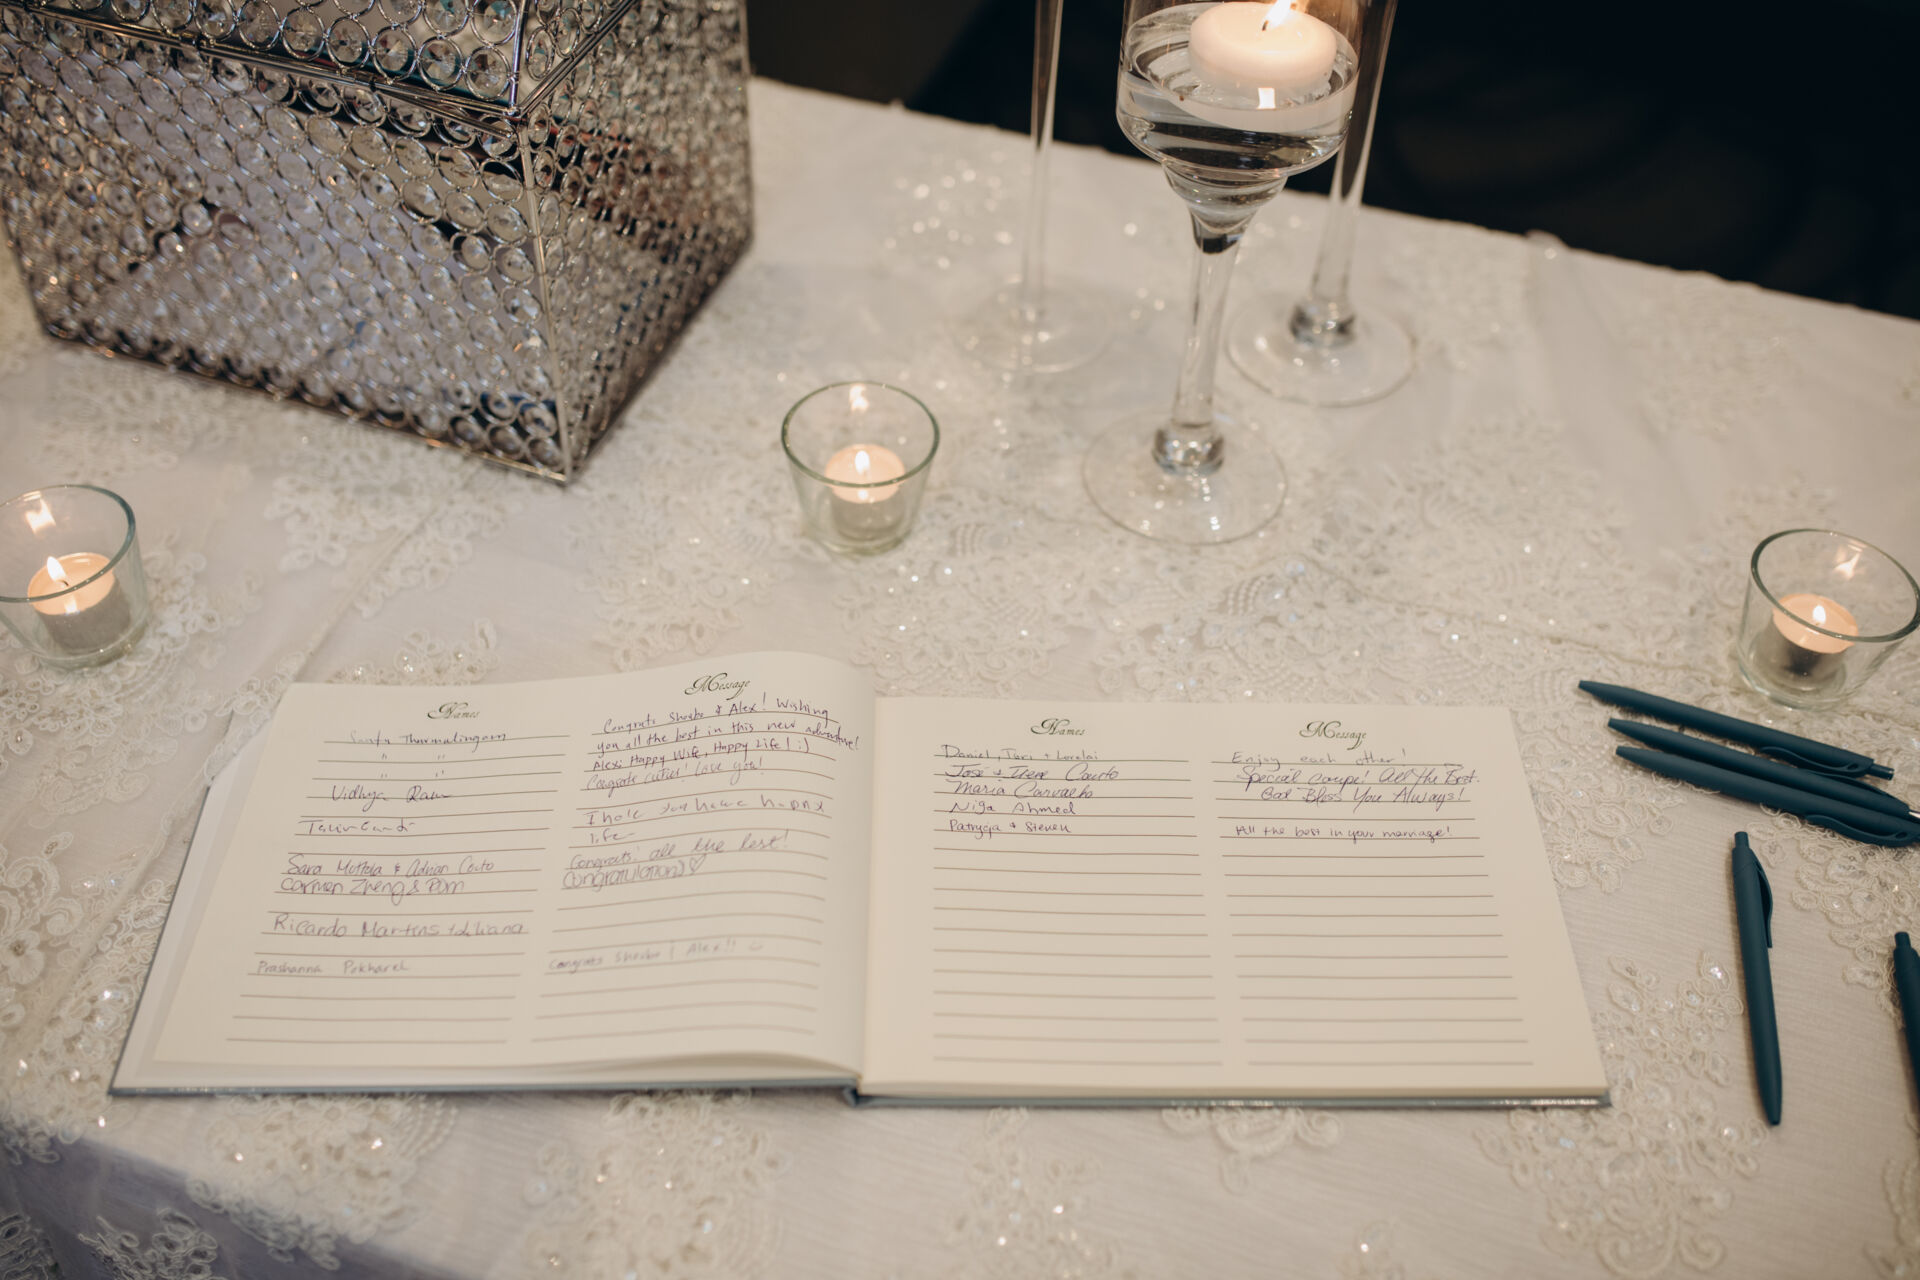 Names
Thurmalingam
" "
" "
Vidhya Ram
Sara Mottola & Adrian Couto
Carmen Zheng & Pam
Ricardo Martens + Liliana
Prashanna Pokharel
Message
Congrats Sheeba & Alex! Wishing
you all the best in this new adventure!
Alex: Happy Wife, Happy Life! :)
Congrats cuties! Love you!
I hole you have happy
life
Congrats! all the best!
Congratulations ♡
Congrats Sheeba & Alex!!
Names
Daniel, Tori + Lorelai
José + Irene Couto
Maria Carvalho
Niga Ahmed
Patrycja + Steven
Message
Enjoy each other!
Special coupe! All the Best.
God Bless You Always!
All the best in your marriage!